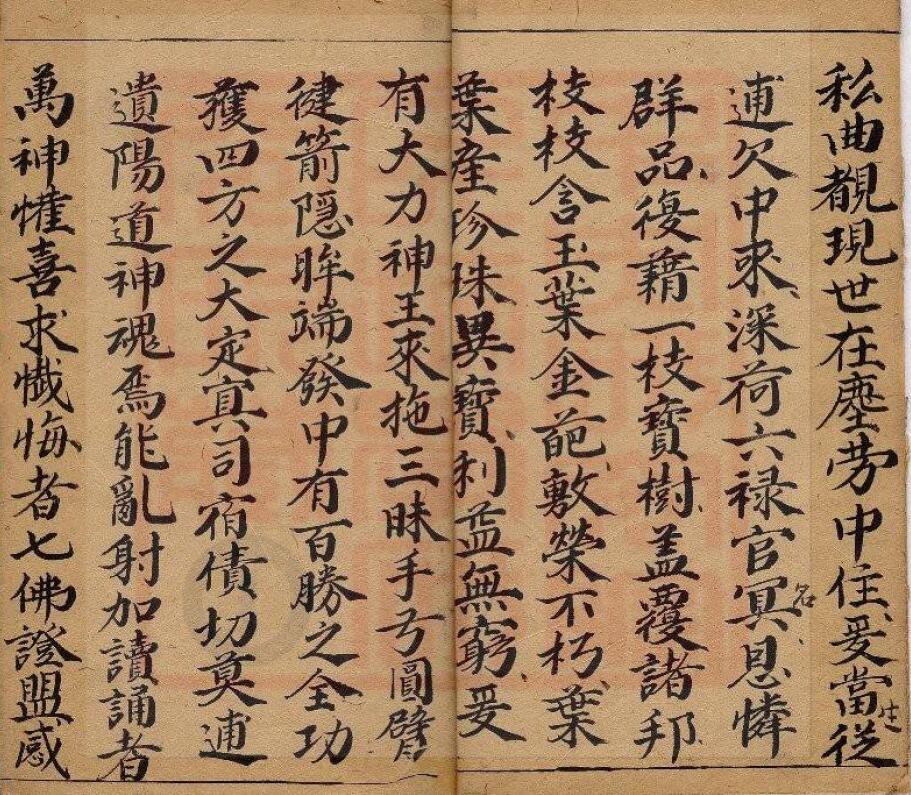 私曲覩現世在塵劳中住爰當從
逋欠中來深荷六禄官冥恩憐
群品復藉一枝寶樹盖覆諸邦
枝枝含玉葉金葩敷榮不朽葉
葉産珍珠異寳利益無窮爰
有大力神王來拖三昧手弓圓臂
健箭隠眸端發中有百勝之全功
獲四方之大定寘司宿債切莫逋
遺陽道神魂焉能亂射加讀誦者
萬神懽喜求懴悔者七佛證盟感